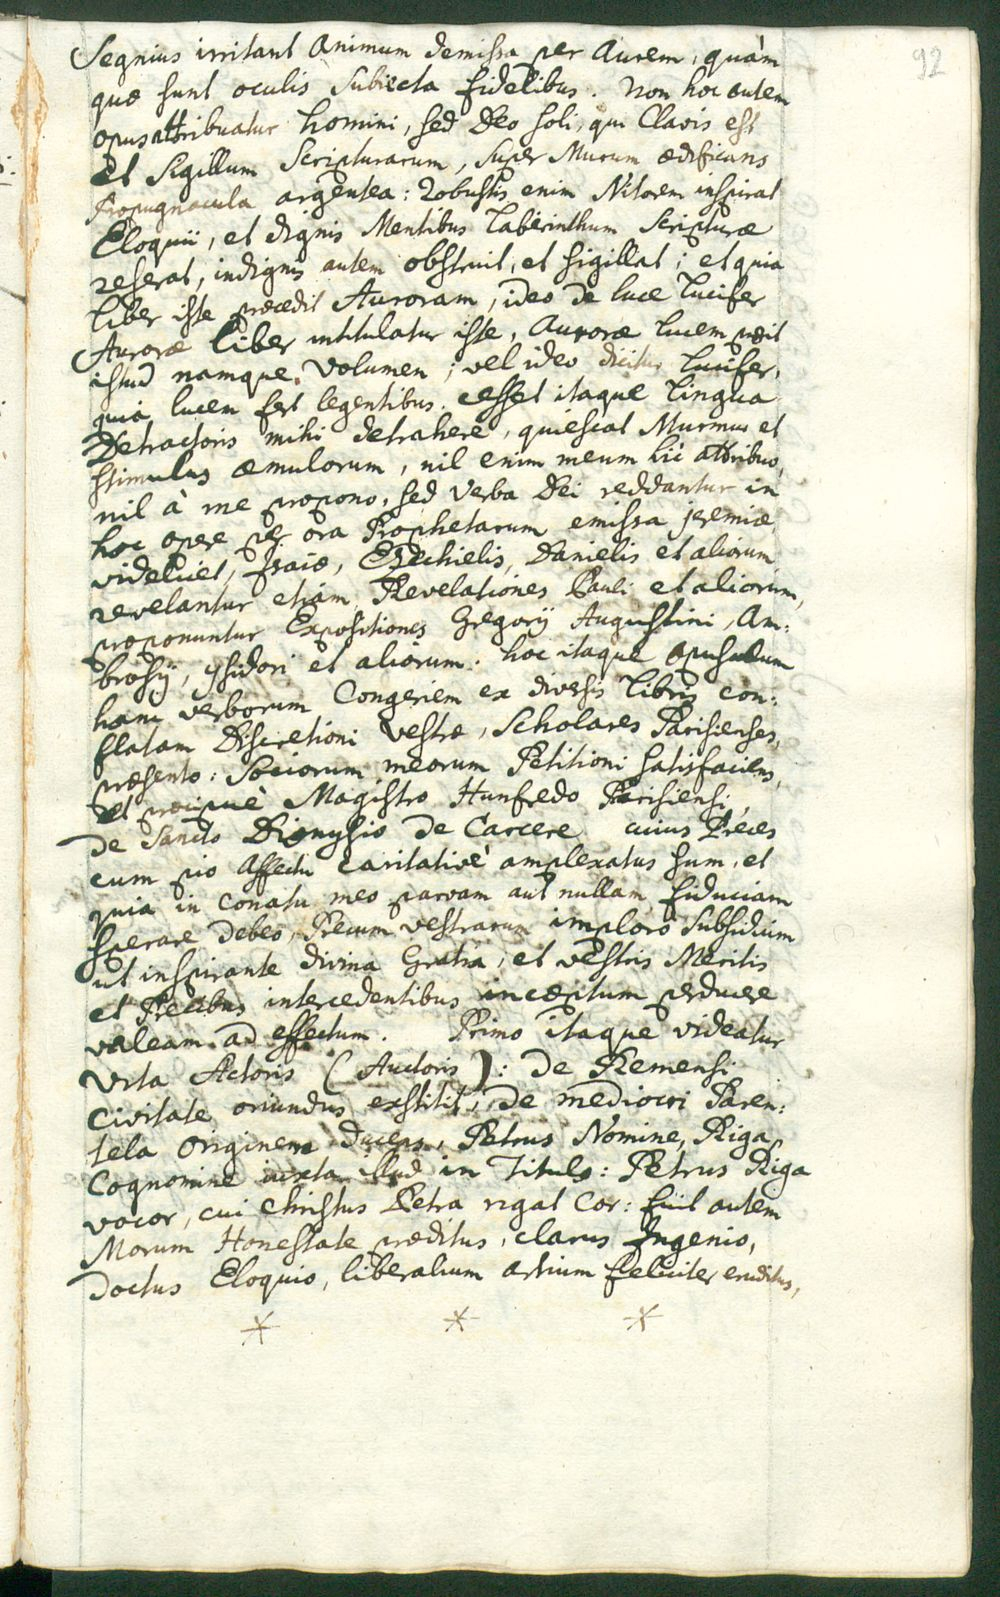 92
Segnius irritant Animum demissa per Aurem, quàm
quæ sunt oculis subiecta fidelibus. Non hoc autem
opus attribuatur homini, sed Deo soli, qui Clavis est
et Sigillum Scripturarum, super Murum ædificans
Propugnacula argentea: Robustis enim Nitorem inspirat
Eloquii, et dignis Mentibus Laberinthum Scripturæ
reserat, indignis autem obstruit, et sigillat; et quia
liber iste præcedit Auroram, ideo de luce Lucifer
Auroræ liber intitulatur iste, Auroræ lucem præit
istud namque Volumen; vel ideo dicitur Lucifer,
quia lucem fert legentibus. Cesset itaque Lingua
Detractoris mihi detrahere, quiescat Murmur et
stimulus æmulorum, nil enim meum hic attribuo,
nil à me propono, sed Verba Dei reddantur in
hoc opere per ora Prophetarum emissa jeremiæ,
videlicet, Isaiæ, Ezechielis, Danielis et aliorum
revelantur etiam Revelationes Pauli et aliorum,
proponuntur Expositiones Gregorij Augustini, Am:
brosij, ysidori et aliorum. hoc itaque opusculum
hanc verborum Congeriem ex diversis libris con:
flatam Discretioni Vestræ, Scholares Parisienses,
præsento: Sociorum meorum Petitioni satisfaciens,
et præcipuè Magistro Hunfredo Parisiensi,
de Sancto Dionysio de Carcere cuius Preces
cum pio Affectu caritativè amplexatus sum, et
quia in Conatu meo parvam aut nullam fiduciam
sperare debeo, Precum vestrarum imploro Subsidium
ut inspirante divina Gratia, et vestris Meritis
et Precibus intercedentibus inceptum perducere
valeam ad effectum. Primo itaque videatur
Vita Actoris (Auctoris): de Remensi
Civitate oriundus exstitit, de mediocri Paren:
tela Originem ducens, Petrus Nomine, Riga
Cognomine iuxta illud in Titulo: Petrus Riga
vocor, cui Christus Petra rigat Cor: fuit autem
Morum Honestate præditus, clarus Ingenio,
doctus Eloquio, liberalium artium feliciter eruditus,
* * *